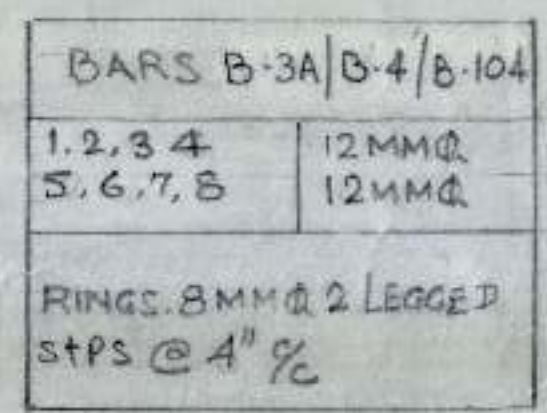 BARS B-3A/B-4/B-104
1.2,3 4 12MMØ
5,6,7,8 12MMØ
RINGS.8MMØ 2 LEGGED
StPS @ 4" C/C